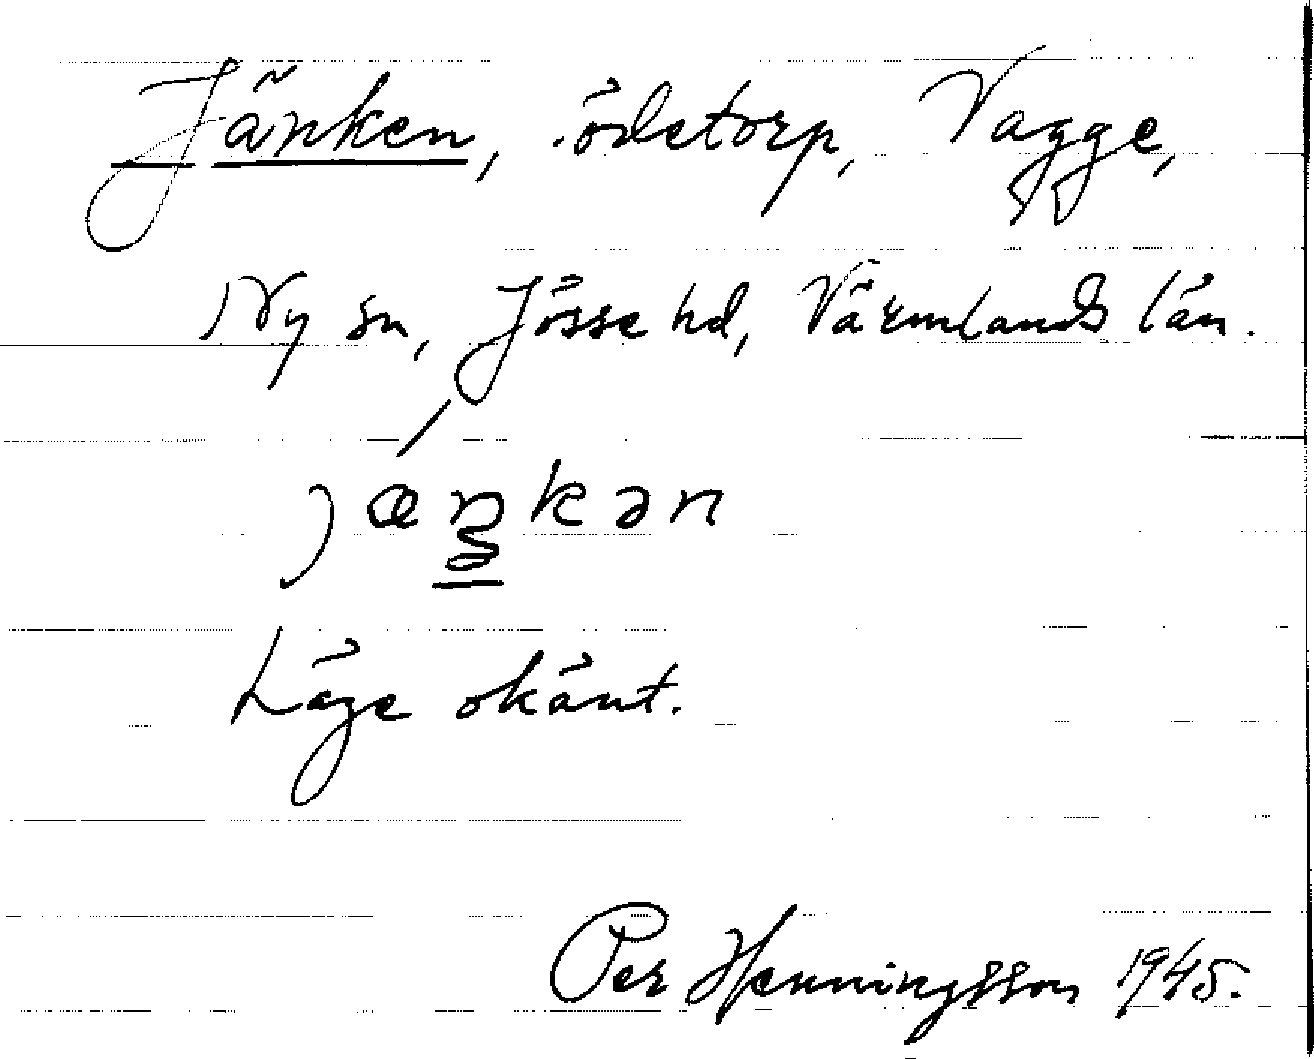 Jänken, ödetorp, Vagge,
Ny sn, Jösse hd, Värmlands län.
Läge okänt.
Per Henningsson 1945.